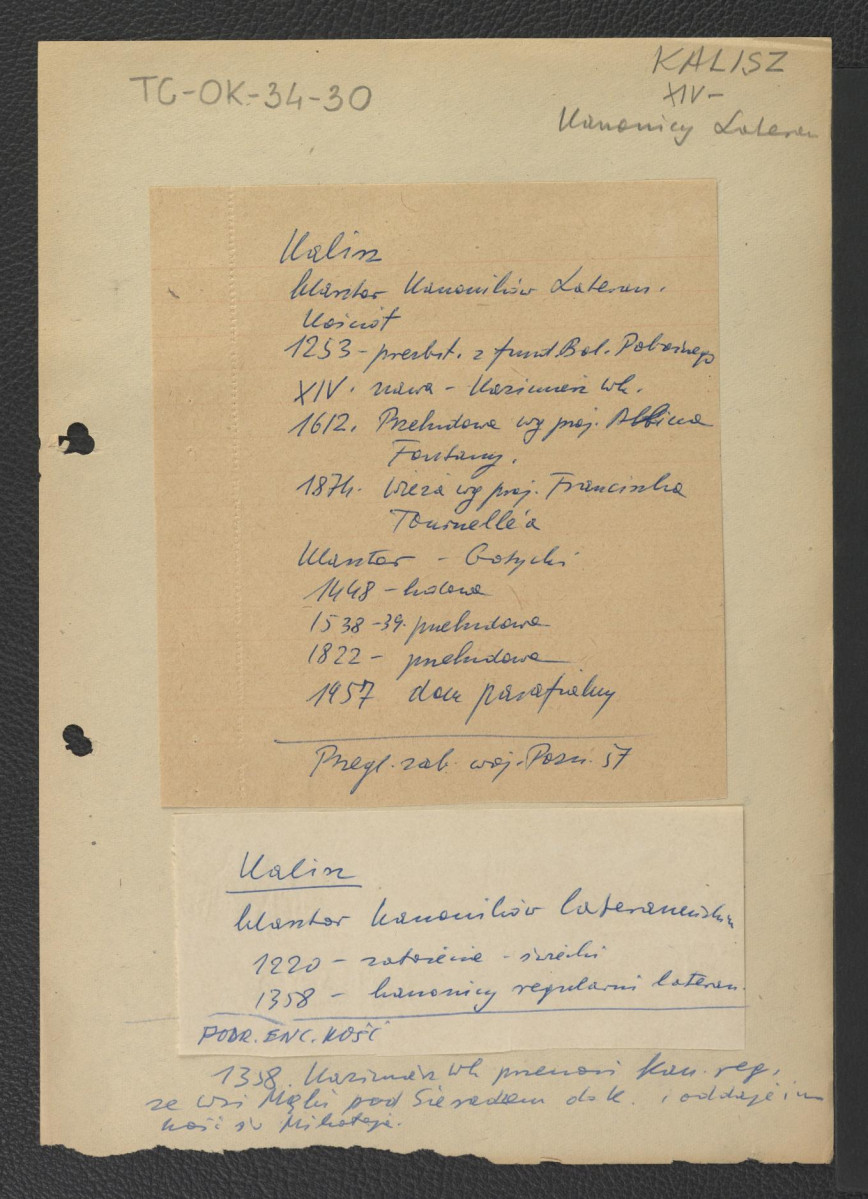 TC-OK-34-30
KALISZ
XIV-
Kanonicy Lateran
Kalisz
klasztor Kanoników Lateran.
Kościół
1253 - prezbit. z fund. Bol. Pobożnego
XIV. nawa - Kazimierz Wk.
1612. Przebudowa wg proj. Albina
Fontany.
1874. Wieża wg proj. Franciszka
Tournelle'a
Klasztor - Gotycki
1448 - budowa
1538-39. przebudowa
1822 - przebudowa
1957 dom parafialny
Przegl. zab. woj. Pozn. 57
Kalisz
klasztor Kanoników laterańskich
1220 - założenie - świecki
1358 - kanonicy regularni lateran.
PODR. ENC. KOŚĆ
1358. Kazimierz Wk przenosi kan. reg.
ze wsi Męki pod Sieradzem do K. i oddaje im
kość św Mikołaja.